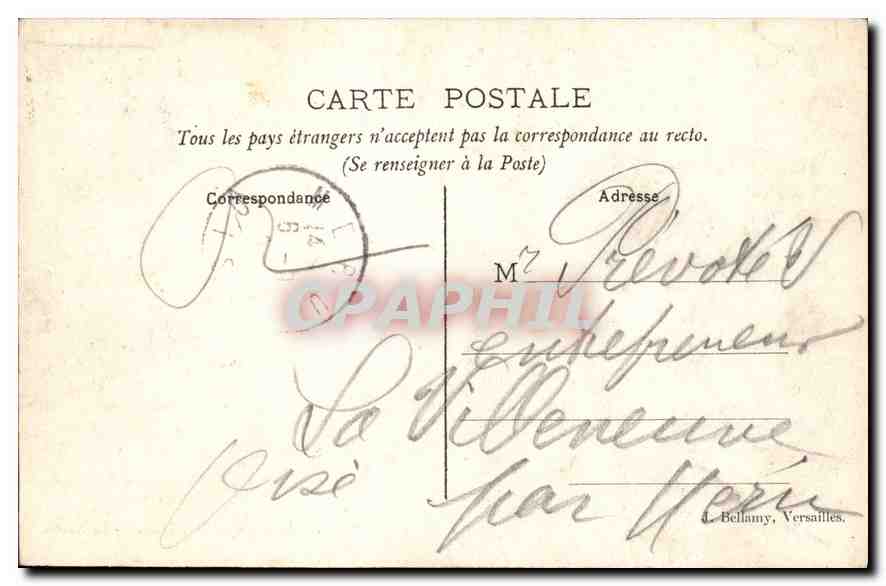 CARTE POSTALE
Tous les pays étrangers n'acceptent pas la correspondance au recto.
(Se renseigner à la Poste)
Correspondance
Adresse
Mr Prévotet
entrepreneur
La Villeneuve
par
Oise
J. Bellamy, Versailles.
CPAPHIL